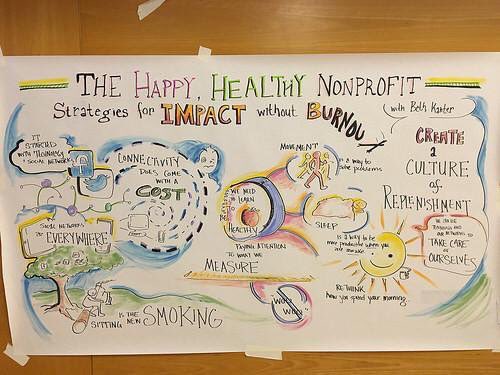 THE HAPPY, HEALTHY NONPROFIT
Strategies for IMPACT without BURNOUT
with Beth Kanter
IT
STARTED
WITH
& SOCIAL NETWORKS
CONNECTIVITY
DOES COME
WITH A
COST
SOCIAL NETWORKS
EVERYWHERE
SITTING IS THE NEW SMOKING
WE NEED
TO LEARN
HEALTHY
PAYING ATTENTION
TO WHAT WE
MEASURE
MOVEMENT
is a way to
solve problems
SLEEP
is a way to be
more productive when you
are awake
RETHINK
how you spend your morning
WOO
WOO
CREATE
a
CULTURE
of
REPLENISHMENT
TAKE CARE
of
OURSELVES